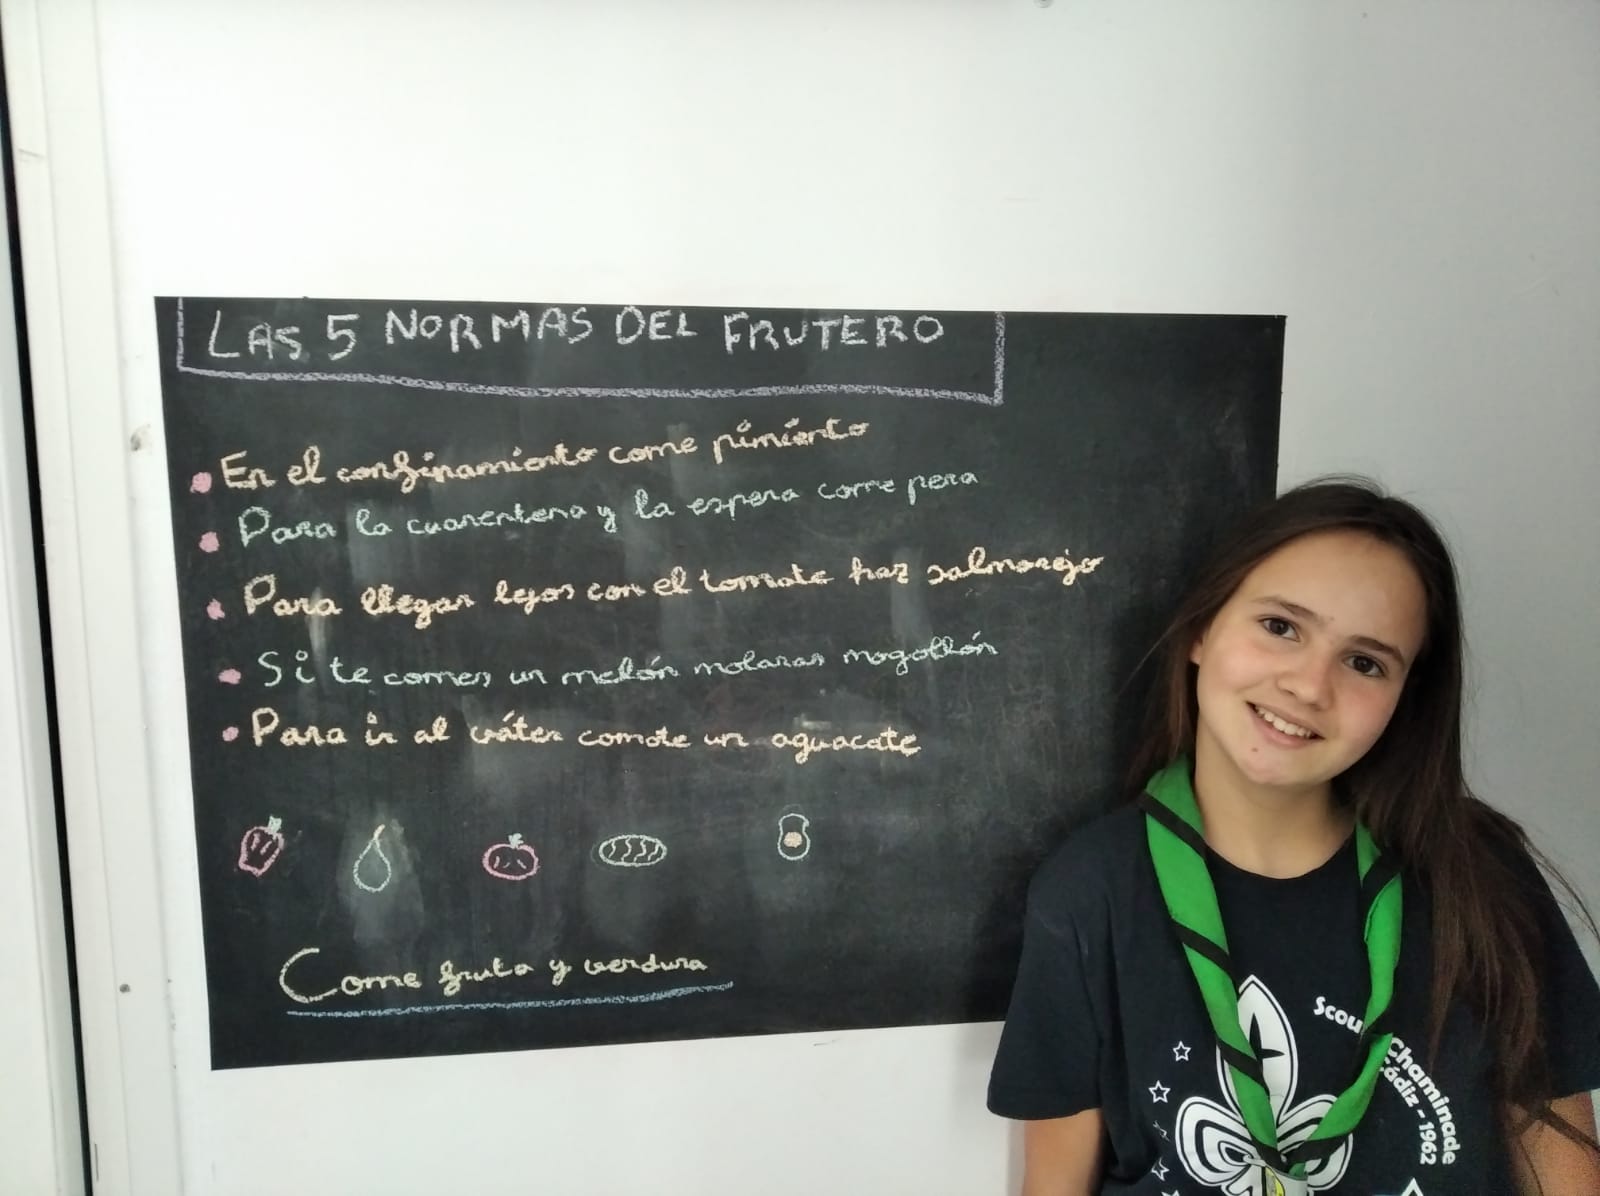 LAS 5 NORMAS DEL FRUTERO
En el confinamiento come pimiento
Para la cuarentena y la espera come pera
Para llegar lejos con el tomate haz salmorejo
Si te comes un melón molaras mogollón
Para ir al váter comote un aguacate
Come fruta y verdura
Scou
Chaminade
Cádiz - 1962